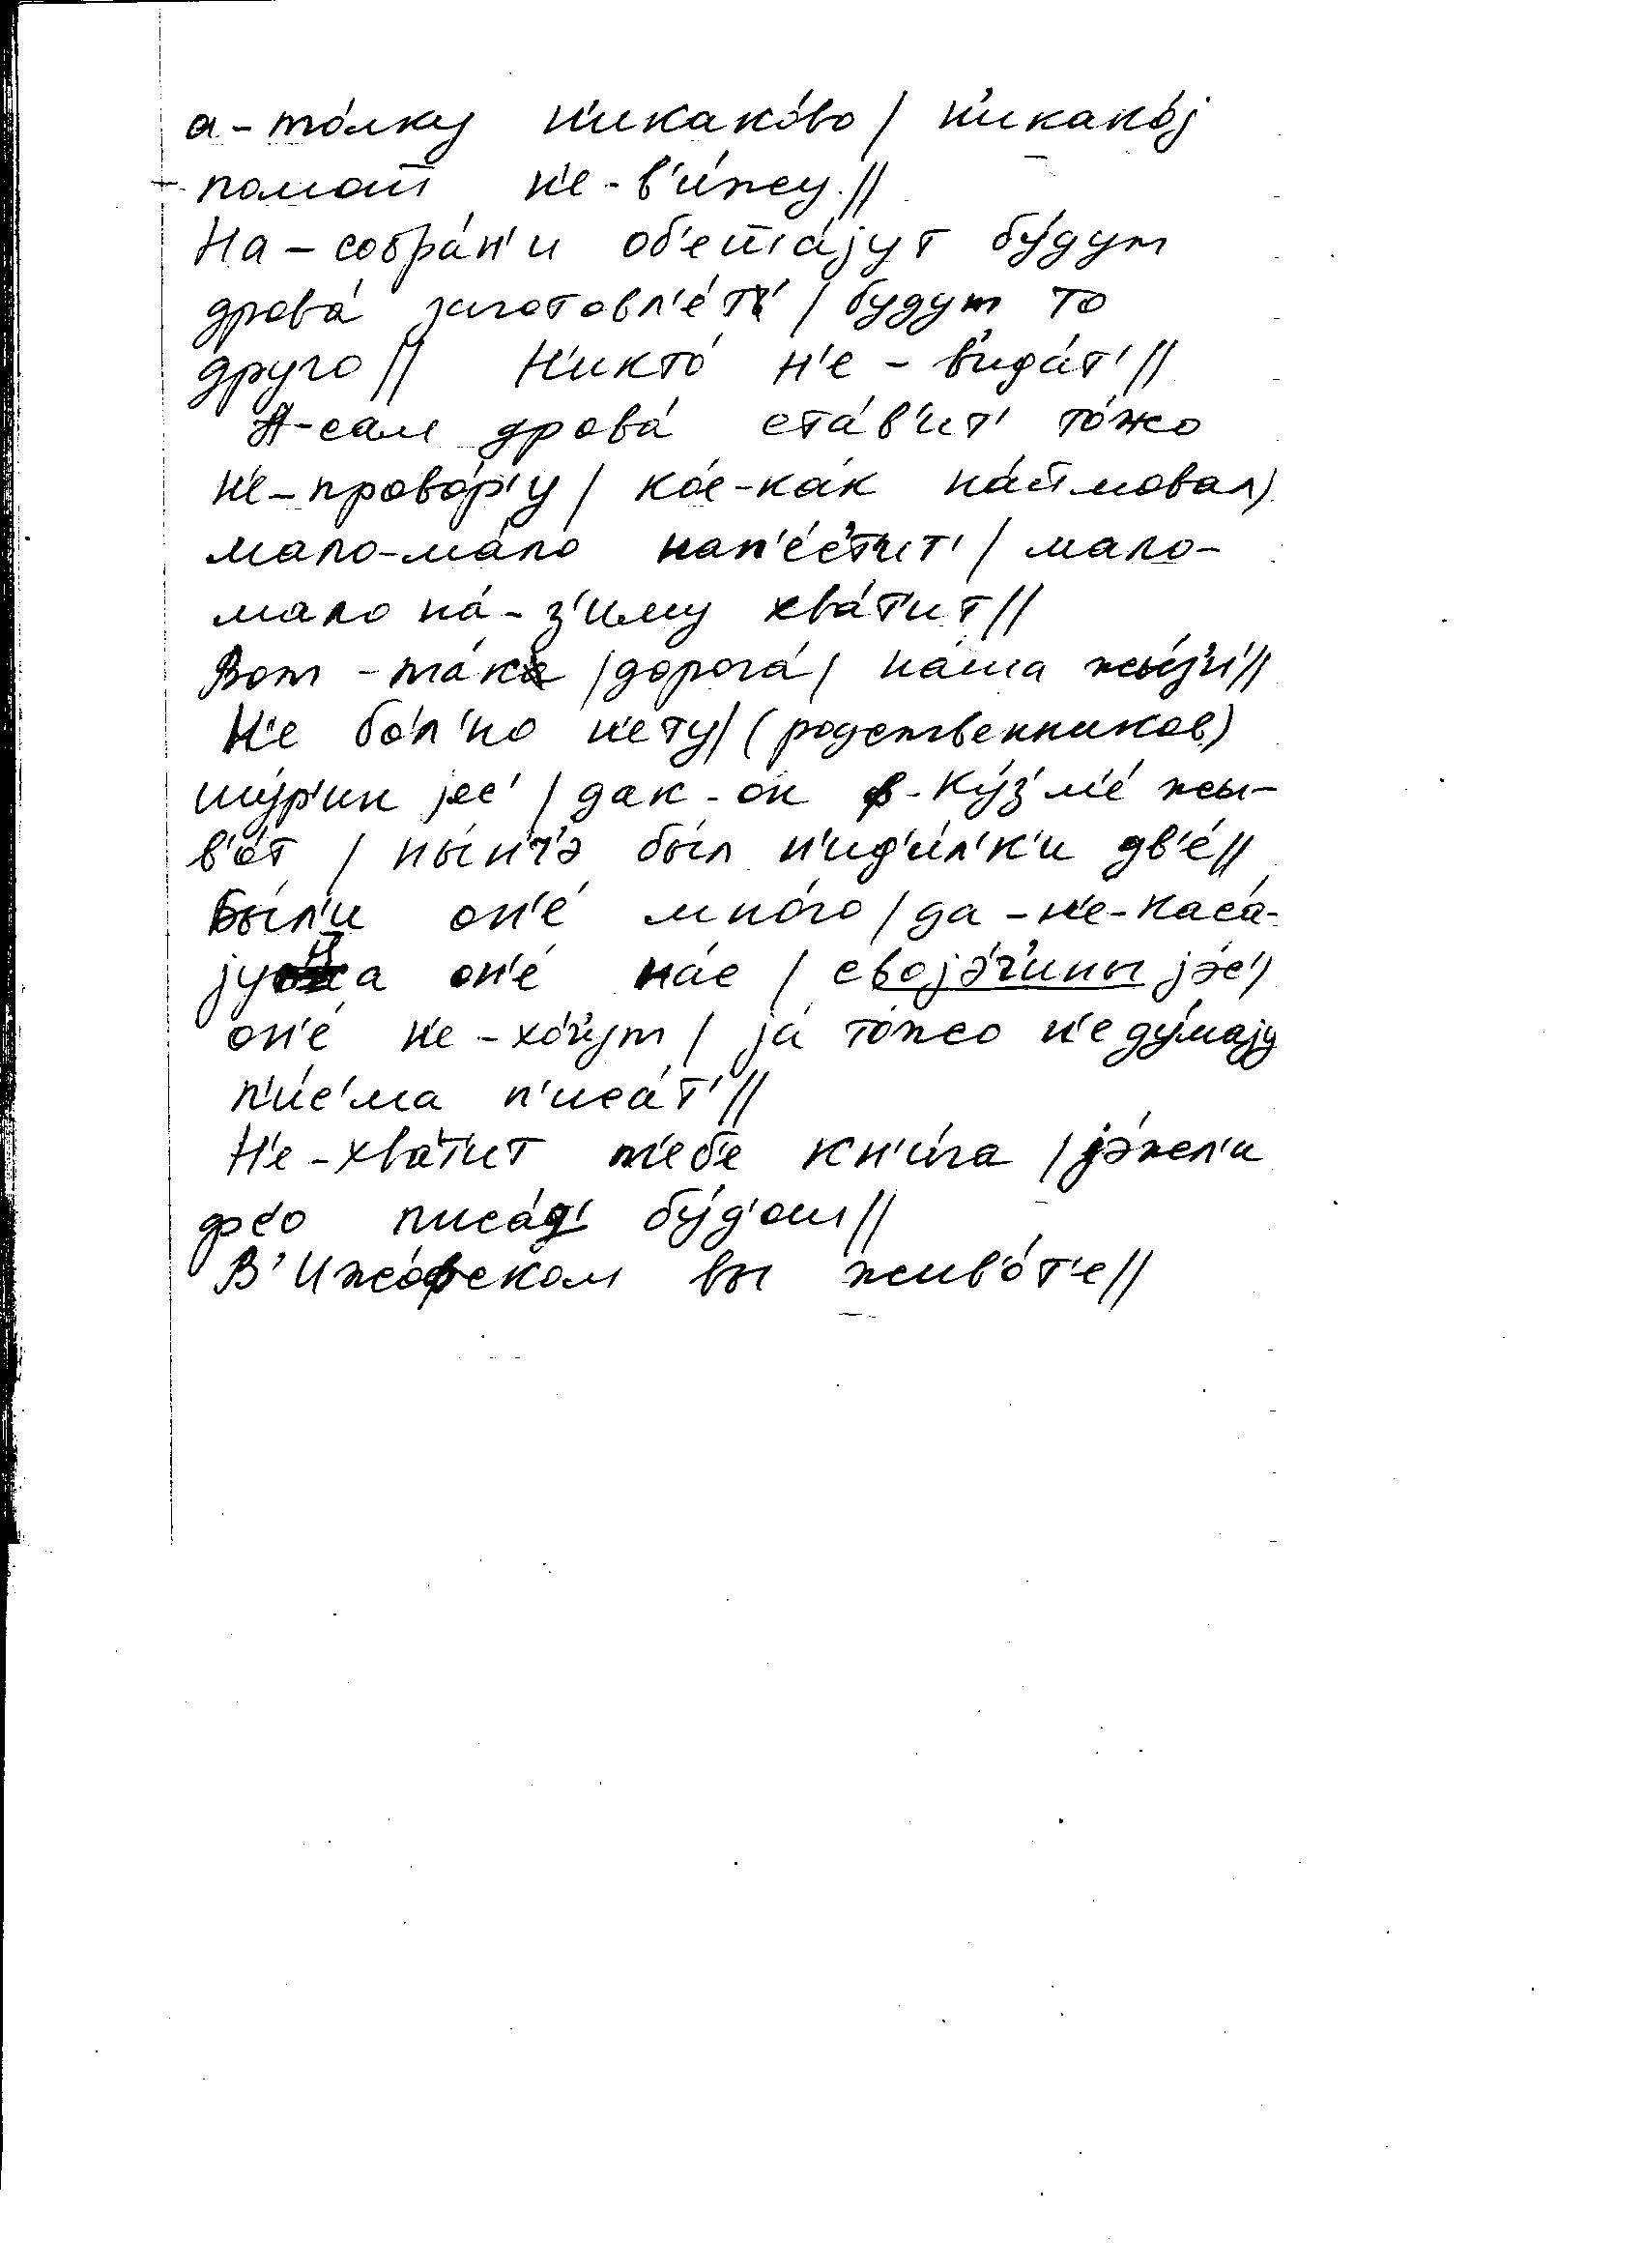 а-то́лку н'икако́во / н'икако́j
помош н'е-в'и́жу //
На-собра́н'и об'ешша́jут бу́дут
дрова́ заготовл'е́т' / будут то
друго // Н'икто́ н'е - в'ида́т' //
А-сам дрова́ ста́в'ит' то́жо
н'е-прово́р'у / ко́е-ка́к
мало-ма́ло / мало-
мало на́-з'иму хва́т'ит //
Вот - та́ка / дорога́ / на́ша жы́з'н' //
Н'е бо́л'но н'ету / (родственников)
шу́р'ин jес' / дак-он в-Ку́з'м'е́ жы-
в'о́т / ны́н'ч'э был н'ид'и́л'к'и дв'е́ //
Были он'е́ мно́го / да-н'е-каса́-
jуца он'е́ на́с / своjа́ч'ины jэ́с' /
он'е́ н'е-хо́ч'ут / jа́ то́жо н'е ду́маjу
п'ис'ма п'иса́т' //
Н'е-хва́т'ит т'еб'е кн'и́га / jэ́жел'и
фс'о писа́д' бу́д'ош //
В' Ижо́фском вы жив'о́т'е //